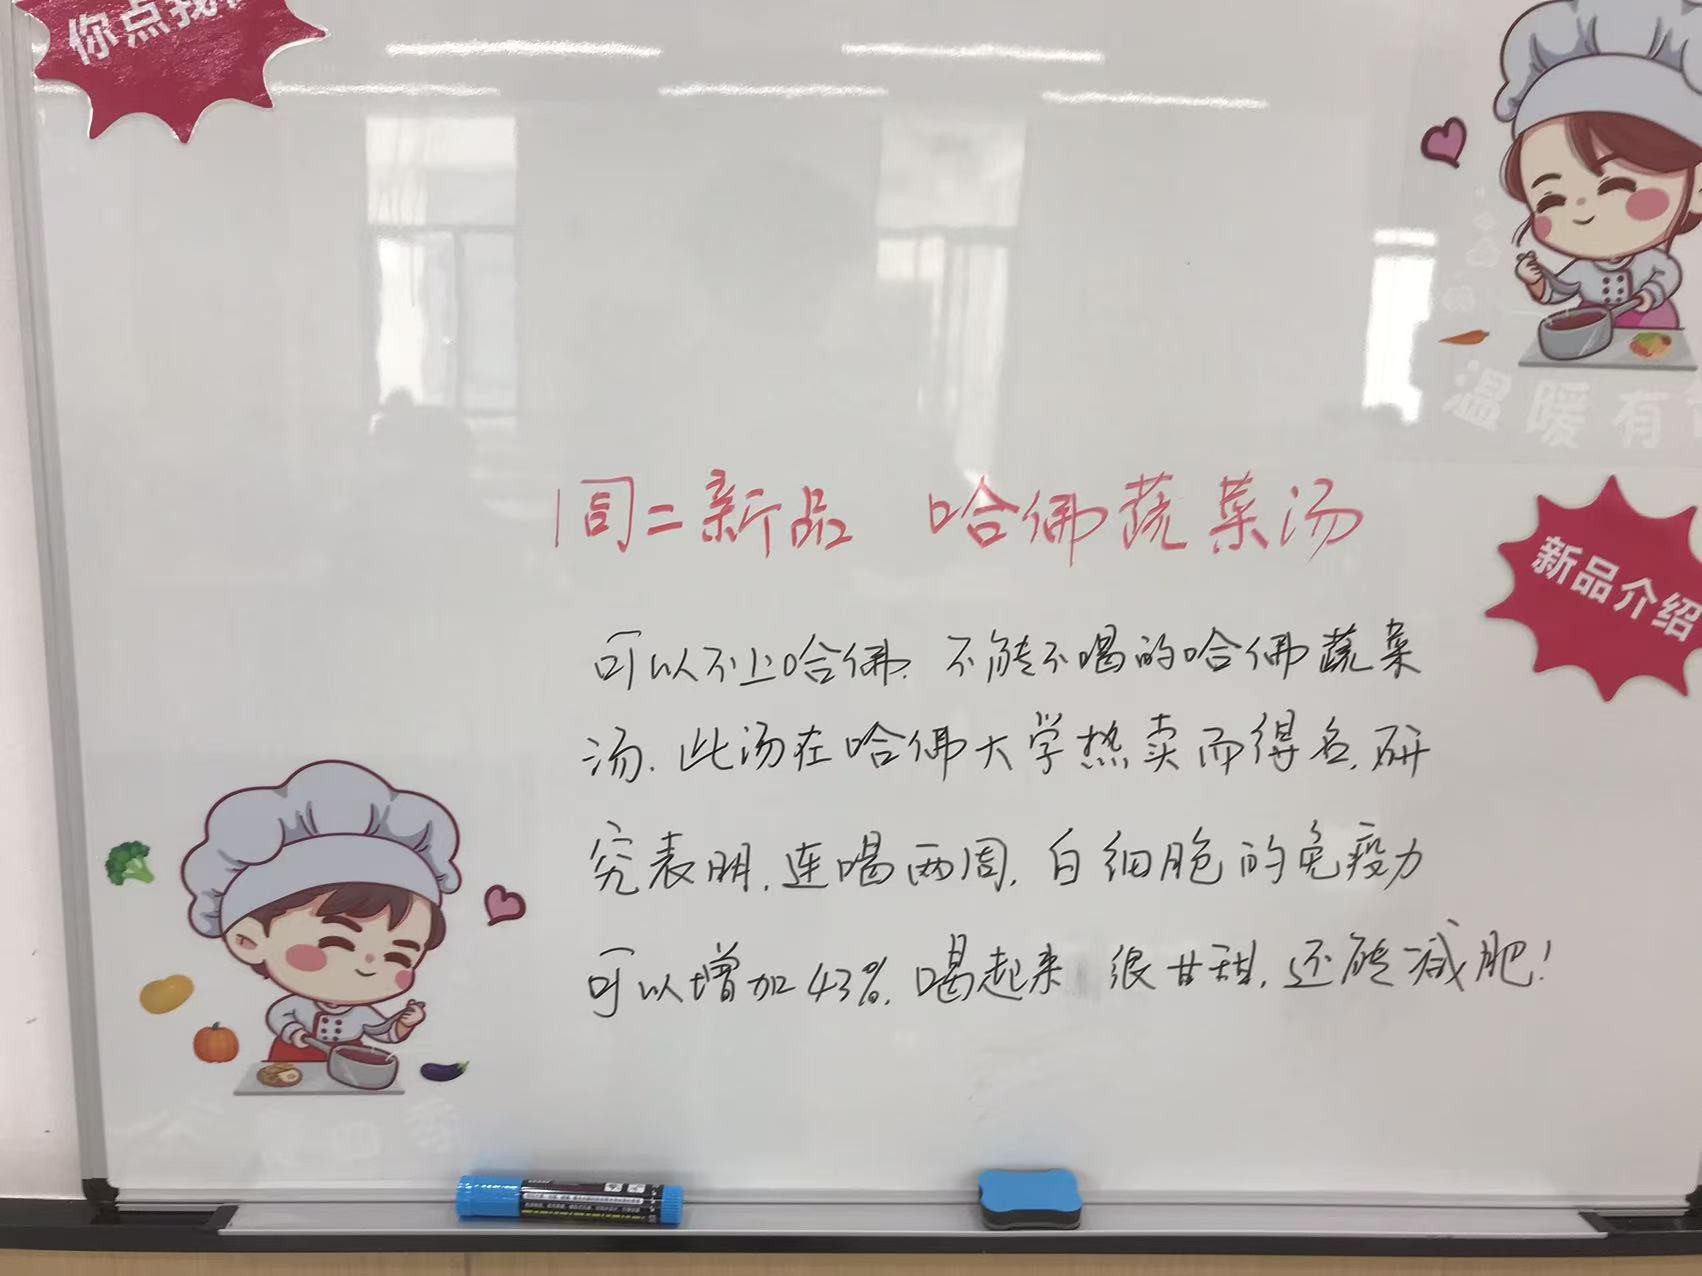 你点我
温暖有
周二新品 哈佛蔬菜汤
新品介绍
可以不上哈佛.不能不喝的哈佛蔬菜
汤.此汤在哈佛大学热卖而得名.研
究表明.连喝两周.白细胞的免疫力
可以增加43%.喝起来 很甘甜.还能减肥!